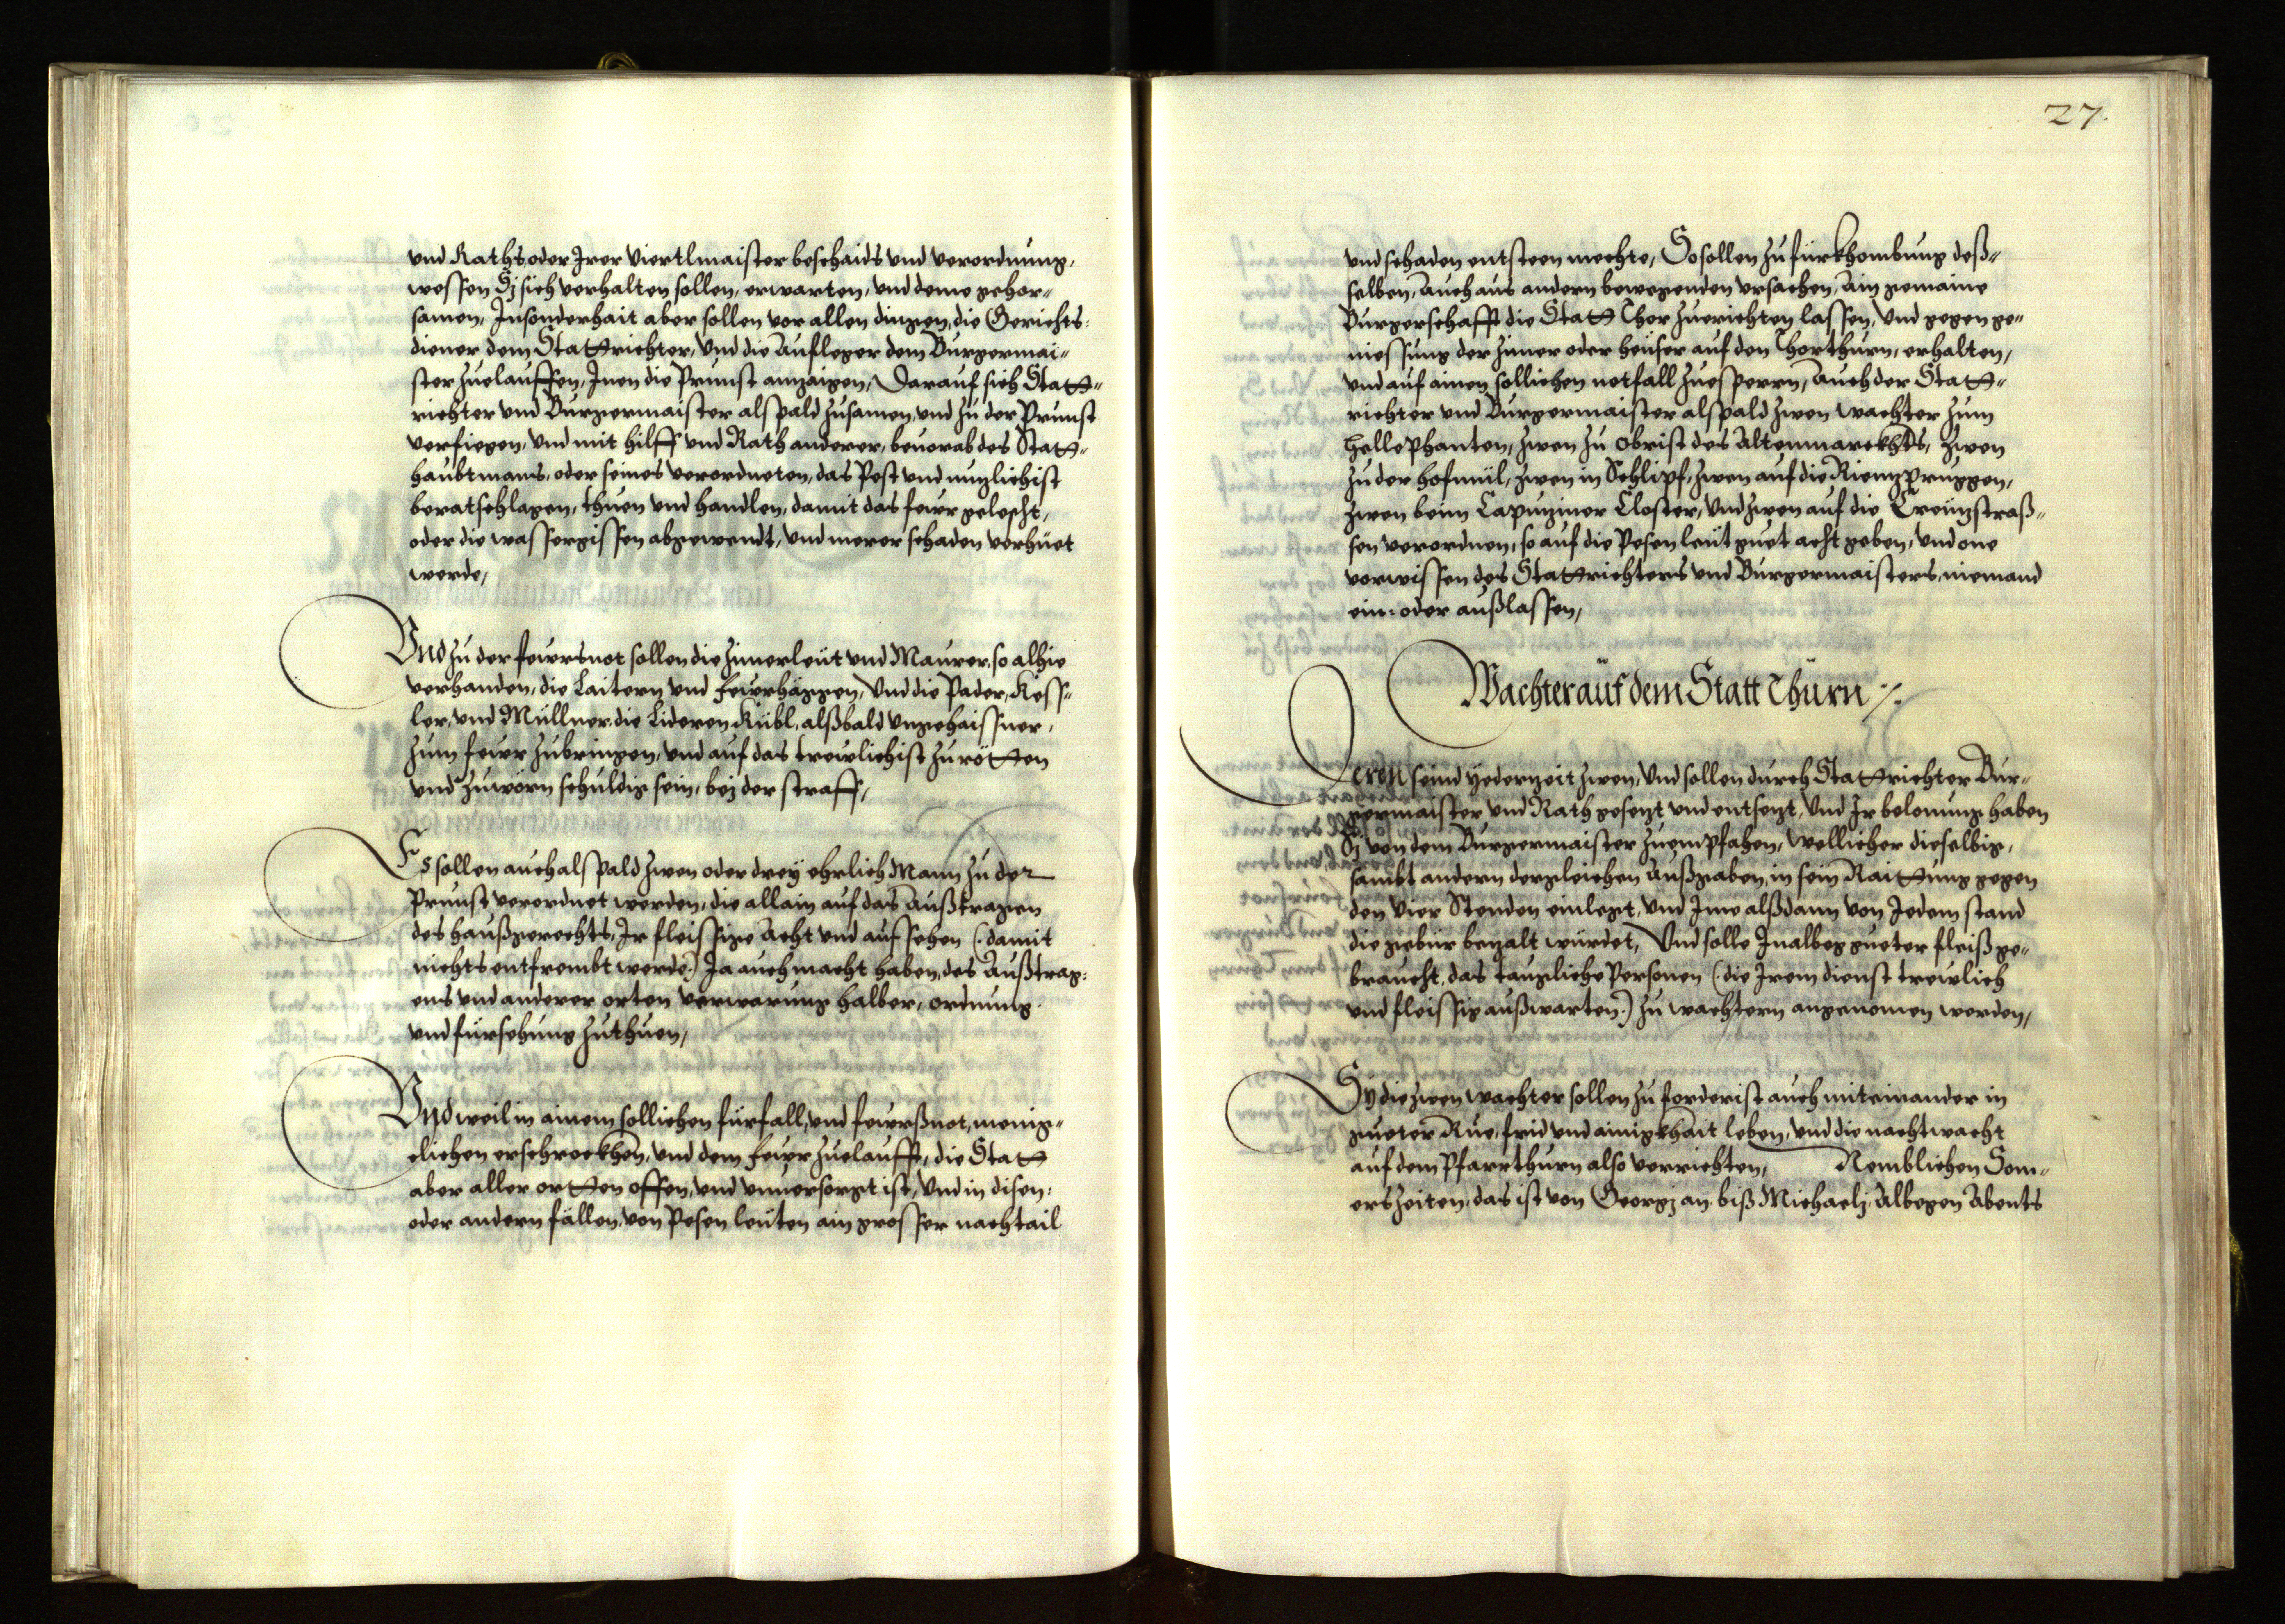 und Raths, oder Irer Viertlmaister beschaids und verordnung,
wessen Sÿ sich verhalten sollen, erwarten, und deme gehor-
samen, Insonderhait aber sollen vor allen dingen, die Gerichts:
diener dem Stattrichter, Und die Aufleger dem Burgermai-
ster zuelauffen, Inen die Prunst anzaigen, Darauf sich Statt-
richter und Burgermaister alspald zusamen, und zu der Prunst
verfiegen, Und mit hilff und Rath anderer, bevorab des Statt-
haubtmans, oder seines verordneten, das Pest und nuzlichist
beratschlagen, thuen und handlen, damit das feur gelescht,
oder die wassergissen abgewendt, Und merer schaden verhüet
werde,
Und zu der feursnot sollen die Zimerleüt und Maurer, so alhie
verhanden, die Laitern und feurhäggen, Und die Pader, Kess-
ler, und Müllner, die Lideren Kübl, alßbald ungehaissner,
zum feur zubringen, und auf das treulichist zu rötten
und zuwörn schuldig sein, bej der straff,
Es sollen auch alspald zwen oder dreÿ ehrlich Mann zu der
Prunst verordnet werden, die allain auf das Außtragen
des haußgerechts, Ir fleissige Acht und aufsehen (: damit
nichts entfrembt werde :) Ja auch macht haben, des Außtrag:
ens und anderer orten verwarung halber, ordnung
und fürsehung zuthuen,
Und weil in ainem sollichen fürfall, und feurßnot, menig-
clichen erschrockhen, und dem feur zuelaufft, die Statt
aber aller orten offen, und unversorgt ist, Und in disen:
oder andern fällen, von Pesen leüten ain grosser nachtail
27.
und schaden entsteen mechte, So sollen zu fürkhombung deß-
selben, Auch aus andern bewegenden ursachen, Ain gemaine
Burgerschafft die Statt Thor zuerichten lassen, Und gegen ge-
niessung der Zimer oder heüser auf den Thorthurn, erhalten,
und auf ainen sollichen notfall zuesperrn, Auch der Statt-
richter und Burgermaister alspald zwen wachter zum
Hellephanten, zwen zu obrist des Altenmarckhts, zwen
zu der hofmül, zwen in Schlipf, zwen auf die Rienzpruggen,
zwen beim Capuziner Closter, Und zwen auf die Creüzstraß-
sen verordnen, so auf die Pesen leüt guet acht geben, Und one
vorwissen des Stattrichters und Burgermaisters, niemand
ein: oder außlassen,
Wachter auf dem Statt Thurn ./.
Deren seind ÿederzeit zwen, Und sollen durch Stattrichter Bur-
germaister und Rath gesezt und entsezt, Und Ir belonung haben
Sÿ von dem Burgermaister zuempfahen, Wellicher dieselbig,
sambt andern dergleichen Außgaben, in sein Raittung gegen
den Vier Stenden einlegt, Und Ime alßdann von Jedem stand
die gebür bezalt würdet, Und solle Inalbeg gueter fleiß ge-
braucht, das taugliche Personen (: die Irem dienst treulich
und fleissig außwarten :) zu wachtern angenomen werden,
Sÿ die zwen wachter sollen zu forderist auch miteinander in
gueter Rue, frid und ainigkhait leben, und die nachtwacht
auf dem Pfarrthurn also verrichten, Nemblichen Som-
erszeiten, das ist von Georgj an, biß Michaelj, Albegen Abents